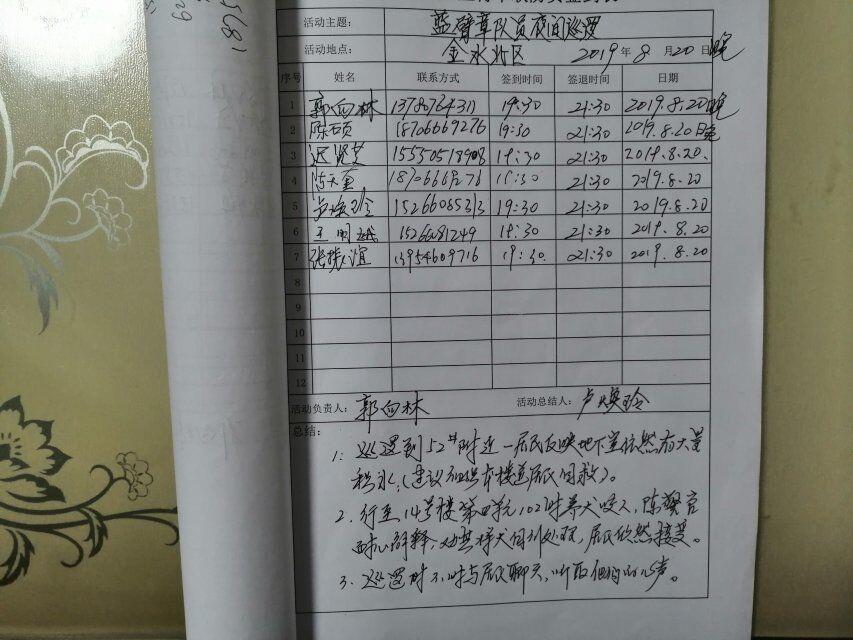 活动主题： 蓝臂章队员夜间巡逻
活动地点： 金水北区 2019年8月20日晚
序号 姓名 联系方式 签到时间 签退时间 日期
1 郭向林 19:30 21:30 2019.8.20晚
2 陈硕 18706669276 19:30 21:30 2019.8.20日晚
3 迟贤芝 15550518908 19:30 21:30 2019.8.20.
4 18706669276 19:30 21:30 2019.8.20
5 卢焕玲 15266085313 19:30 21:30 2019.8.20
6 王明 1526681249 19:30 21:30 2019.8.20
7 张振谊 13954609716 19:30. 21:30 2019.8.20
8
9
10
11
12
活动负责人： 郭向林 活动总结人： 卢焕玲
总结：
1. 巡逻到52#附近一居民反映地下室依然有大量
积水,(建议组织本楼道居民自救)。
2. 行至14号楼第四单元102时养犬咬人,陈警官
耐心解释,劝其将犬自行处理,居民欣然接受。
3. 巡逻时不时与居民聊天,听取他们的心声。